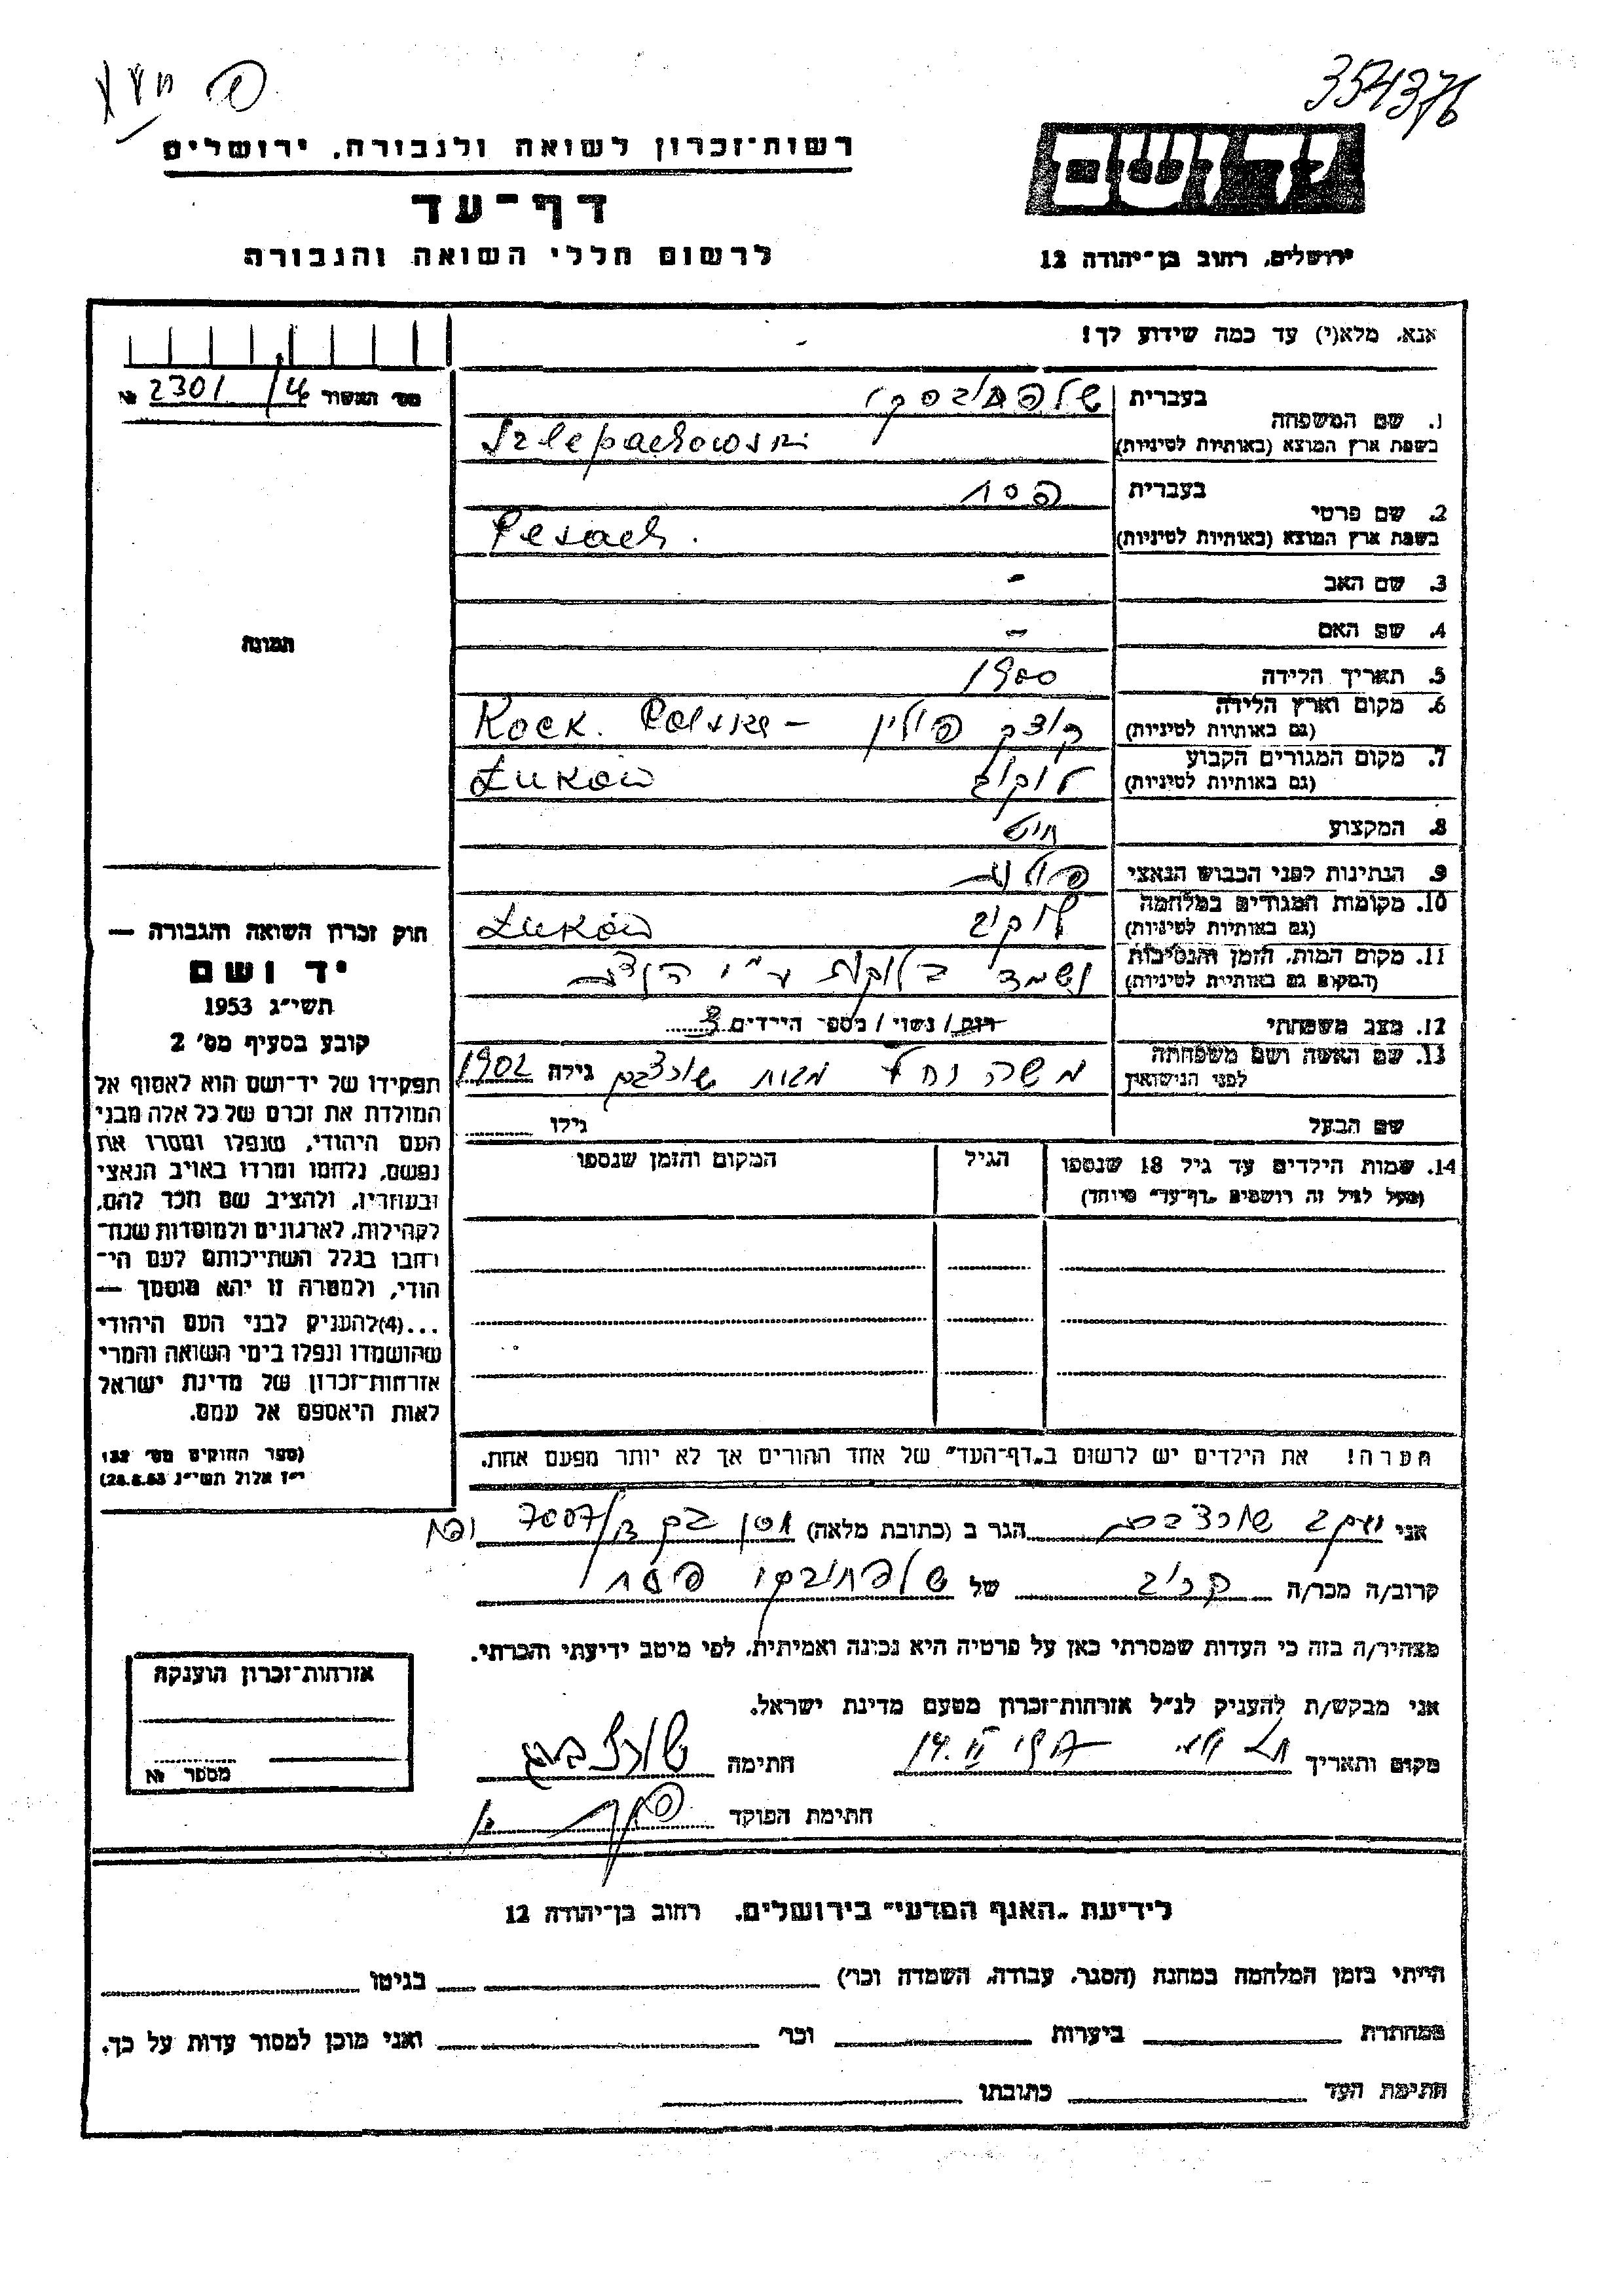 354376
יד ושם
ירושלים, רחוב בן־יהודה 12
רשות־זכרון לשואה ולגבורה, ירושלים
דף־עד
לרשום חללי השואה והגבורה
אנא, מלא(י) עד כמה שידוע לך!
מס׳ האשור 2301 №
1. שם המשפחה בעברית
Szlepachowski
בשפת ארץ המוצא (באותיות לטיניות)
2. שם פרטי בעברית פסח
בשפת ארץ המוצא (באותיות לטיניות) Pesach.
3. שם האב -
4. שם האם -
5. תאריך הלידה 1900
6. מקום וארץ הלידה קוצק פולין - Kock. Polska
(גם באותיות לטיניות)
7. מקום המגורים הקבוע לוקוב Łuków
(גם באותיות לטיניות)
8. המקצוע חיט
9. הנתינות לפני הכבוש הנאצי פולנית
10. מקומות המגורים במלחמה לוקוב Łuków
(גם באותיות לטיניות)
11. מקום המות, הזמן והנסיבות נשמד ע״י
(המקום גם באותיות לטיניות)
12. מצב משפחתי רווק / נשוי / מספר הילדים 3
13. שם האשה ושם משפחתה לפני הנישואין מבית שורצברג גילה 1902
שם הבעל גילו
14. שמות הילדים עד גיל 18 שנספו הגיל המקום והזמן שנספו
(מעל לגיל זה רושמים „דף־עד״ מיוחד)
הערה! את הילדים יש לרשום ב„דף־העד״ של אחד ההורים אך לא יותר מפעם אחת.
תמונה
חוק זכרון השואה והגבורה —
יד ושם
תשי״ג 1953
קובע בסעיף מס׳ 2
תפקידו של יד־ושם הוא לאסוף אל
המולדת את זכרם של כל אלה מבני
העם היהודי, שנפלו ומסרו את
נפשם, נלחמו ומרדו באויב הנאצי
ובעוזריו, ולהציב שם וזכר להם,
לקהילות, לארגונים ולמוסדות שנח־
רבו בגלל השתייכותם לעם הי־
הודי, ולמטרה זו יהא מוסמך —
...(4)להעניק לבני העם היהודי
שהושמדו ונפלו בימי השואה והמרי
אזרחות־זכרון של מדינת ישראל
לאות היאספם אל עמם.
(ספר החוקים מס׳ 132
י״ז אלול תשי״ג 28.8.53)
אני יעקב שורצברג הגר ב (כתובת מלאה) 7007/
קרוב/ה מכר/ה קרוב של פסח
מצהיר/ה בזה כי העדות שמסרתי כאן על פרטיה היא נכונה ואמיתית, לפי מיטב ידיעתי והכרתי.
אני מבקש/ת להעניק לנ״ל אזרחות־זכרון מטעם מדינת ישראל.
מקום ותאריך חתימה שורצברג
חתימת הפוקד
אזרחות־זכרון הוענקה
מספר №
לידיעת „האגף המדעי״ בירושלים, רחוב בן־יהודה 12
הייתי בזמן המלחמה במחנה (הסגר, עבודה, השמדה וכו׳) בגיטו
במחתרת ביערות וכו׳ ואני מוכן למסור עדות על כך.
חתימת העד כתובתו